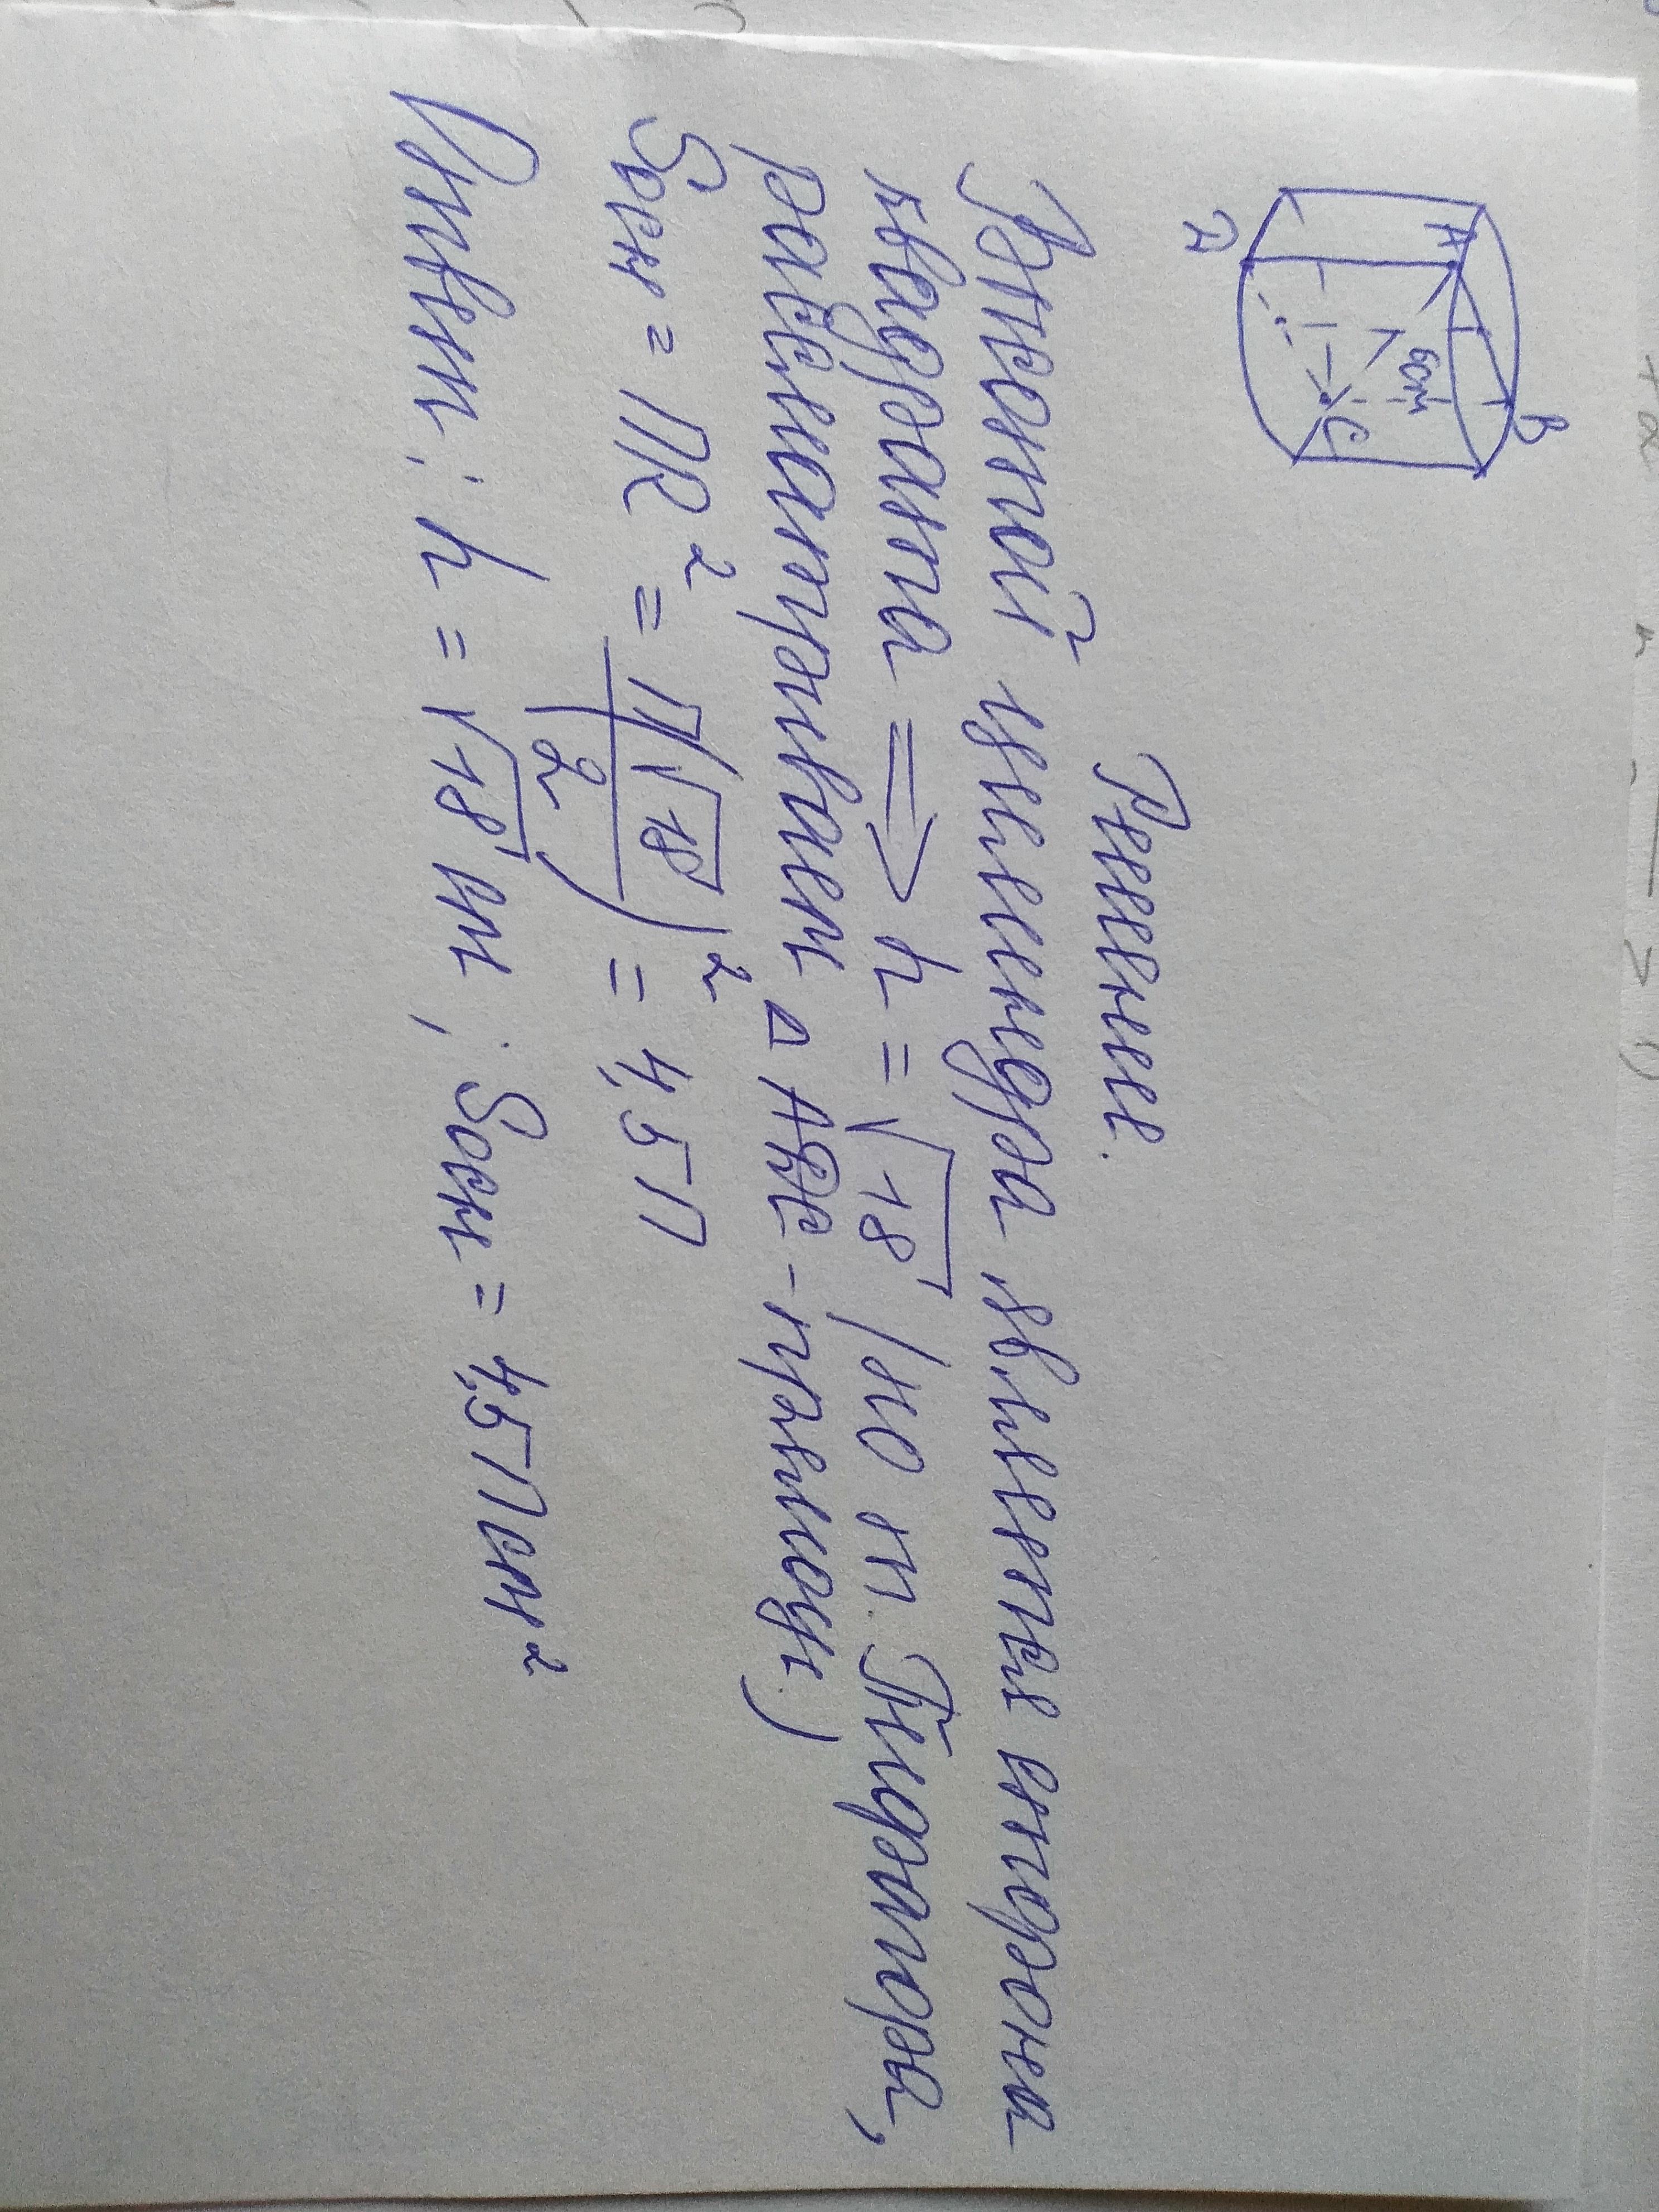 A
B
6см
D
C
Решение.
Высотой цилиндра является сторона
квадрата => h = √18 (по т. Пифагора,
рассматриваем △ ABC - прямоуг.)
Sосн = ПR² = П(√18/2)² = 4,5П
Ответ: h = √18 см; Sосн = 4,5Псм²